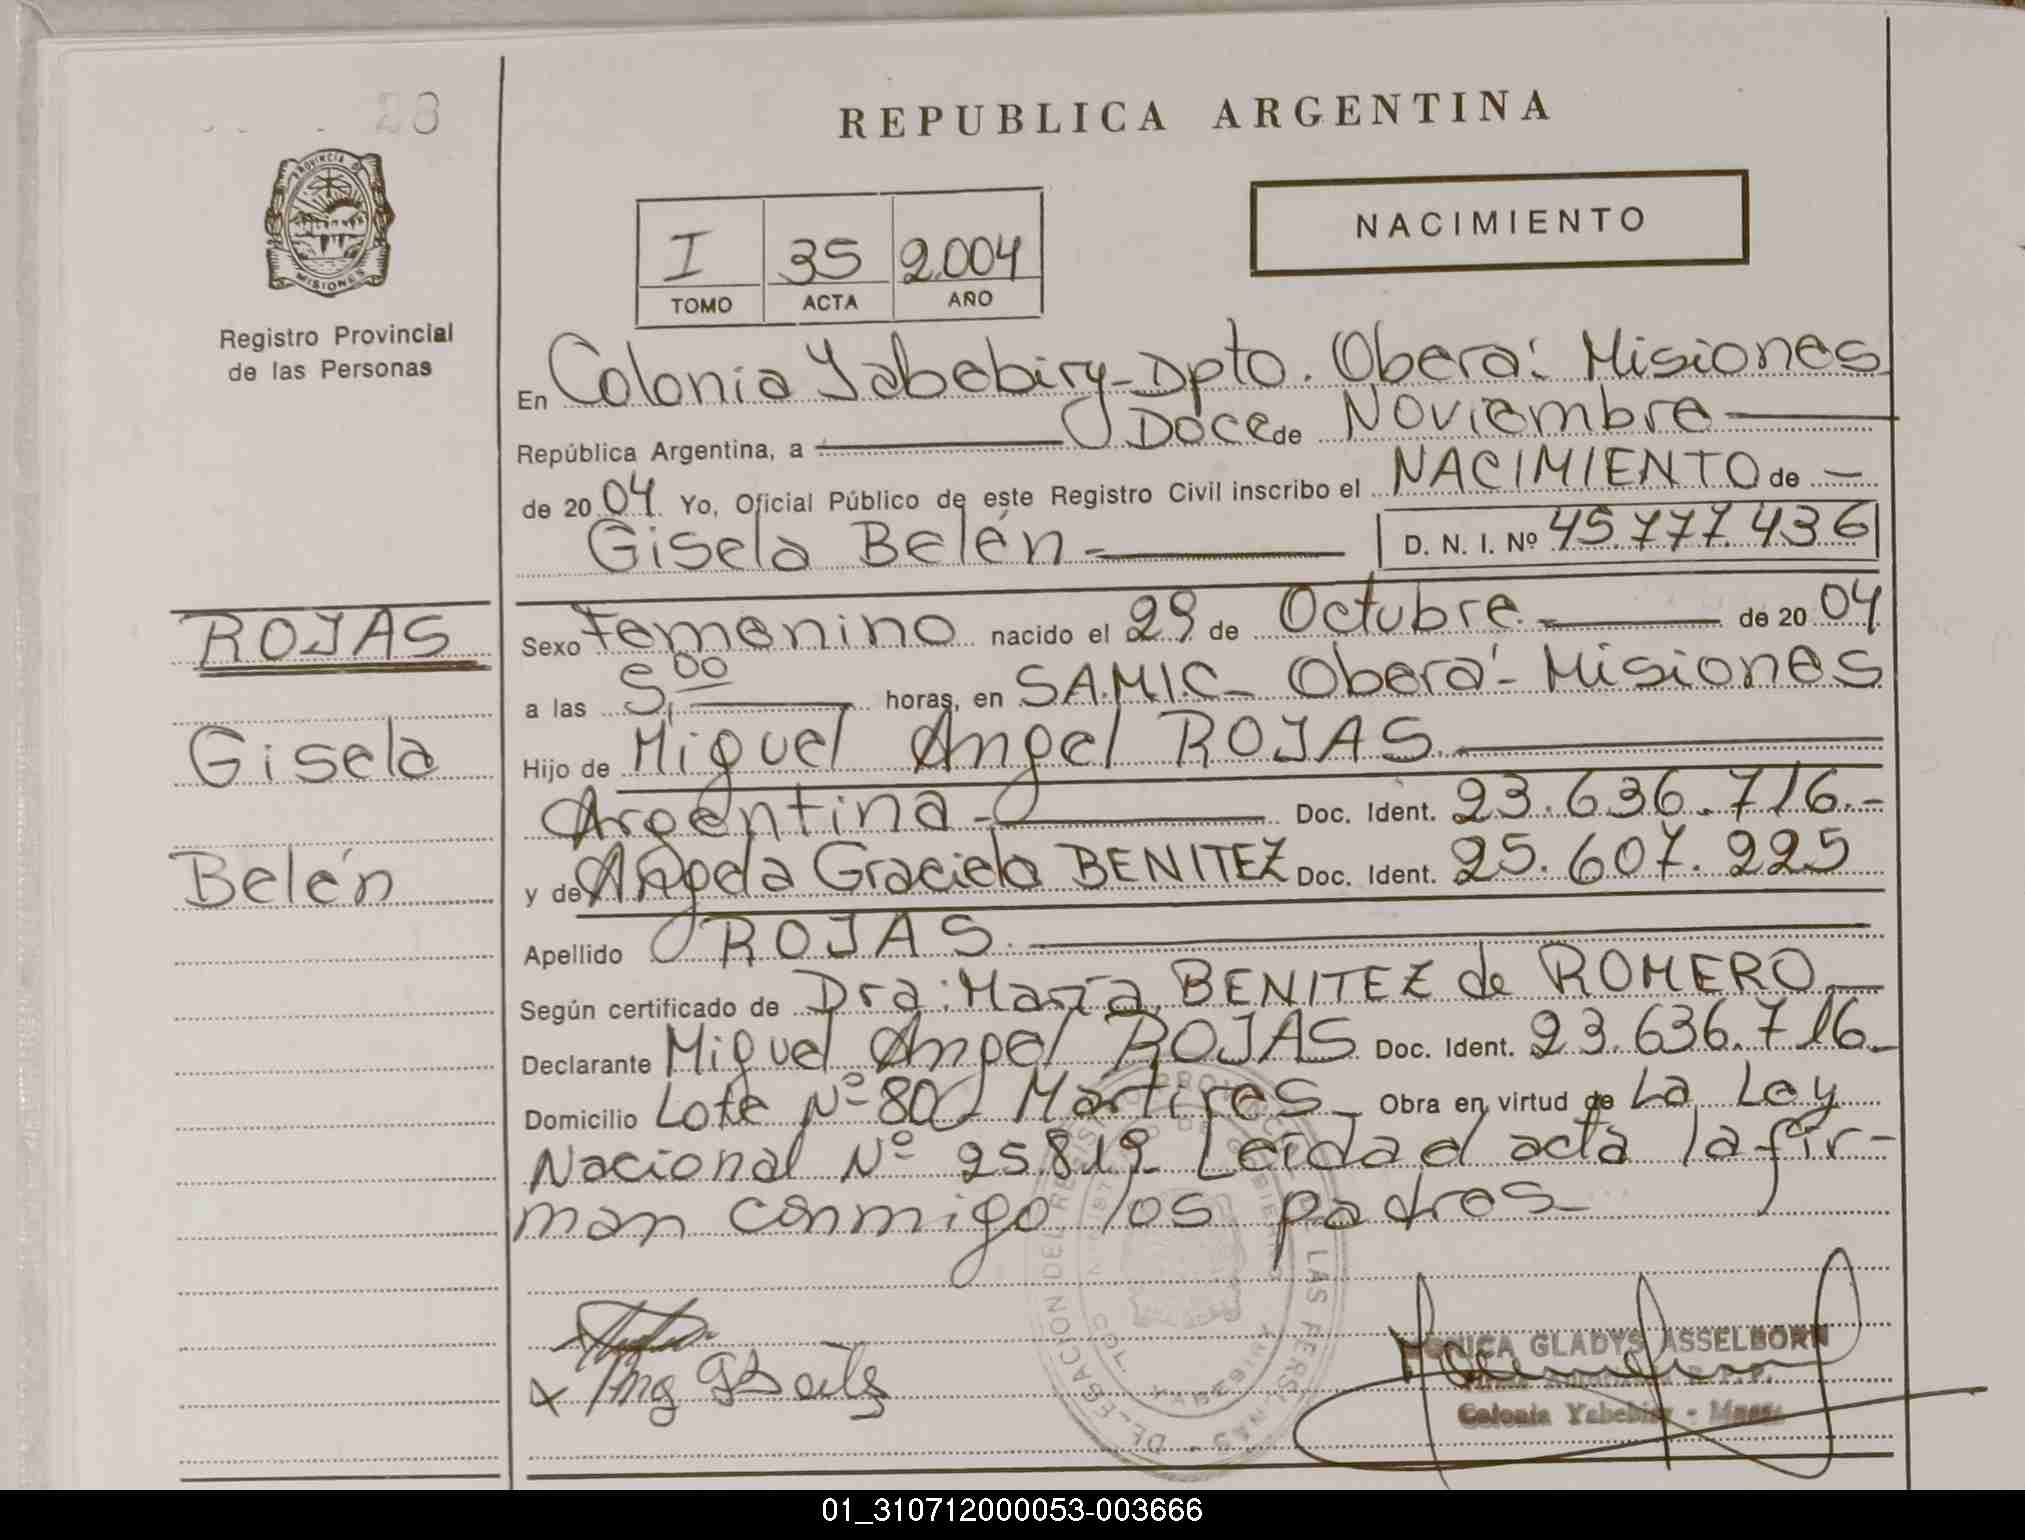 28
REPUBLICA ARGENTINA
PROVINCIA DE
MISIONES
Registro Provincial
de las Personas
I 35 2.004
TOMO ACTA AÑO
NACIMIENTO
En Colonia Yabebiry-Dpto. Oberá: Misiones
República Argentina, a Doce de Noviembre
de 20 04 Yo, Oficial Público de este Registro Civil inscribo el NACIMIENTO de -
Gisela Belén- D. N. I. Nº 45.777.436
ROJAS
Gisela
Belén
Sexo Femenino nacido el 29 de Octubre.- de 20 04
a las horas, en S.A.M.I.C- Oberá- Misiones
Hijo de Miguel Angel ROJAS
Argentina- Doc. Ident. 23.636.716.-
y de Angela Graciela BENITEZ Doc. Ident. 25.607.225
Apellido ROJAS
Según certificado de Dra: María BENITEZ de ROMERO
Declarante Miguel Angel ROJAS Doc. Ident. 23.636.716-
Domicilio Lote Nº 80 Mártires- Obra en virtud de La Ley
Nacional Nº 25819- Leída el acta la fir-
man conmigo los padres-
DELEGACION DEL REGISTRO PROVINCIAL DE LAS PERSONAS
COL. YABEBIRY
MONICA GLADYS ASSELBORN
Colonia Yabebiry - Mnes.
01_310712000053-003666